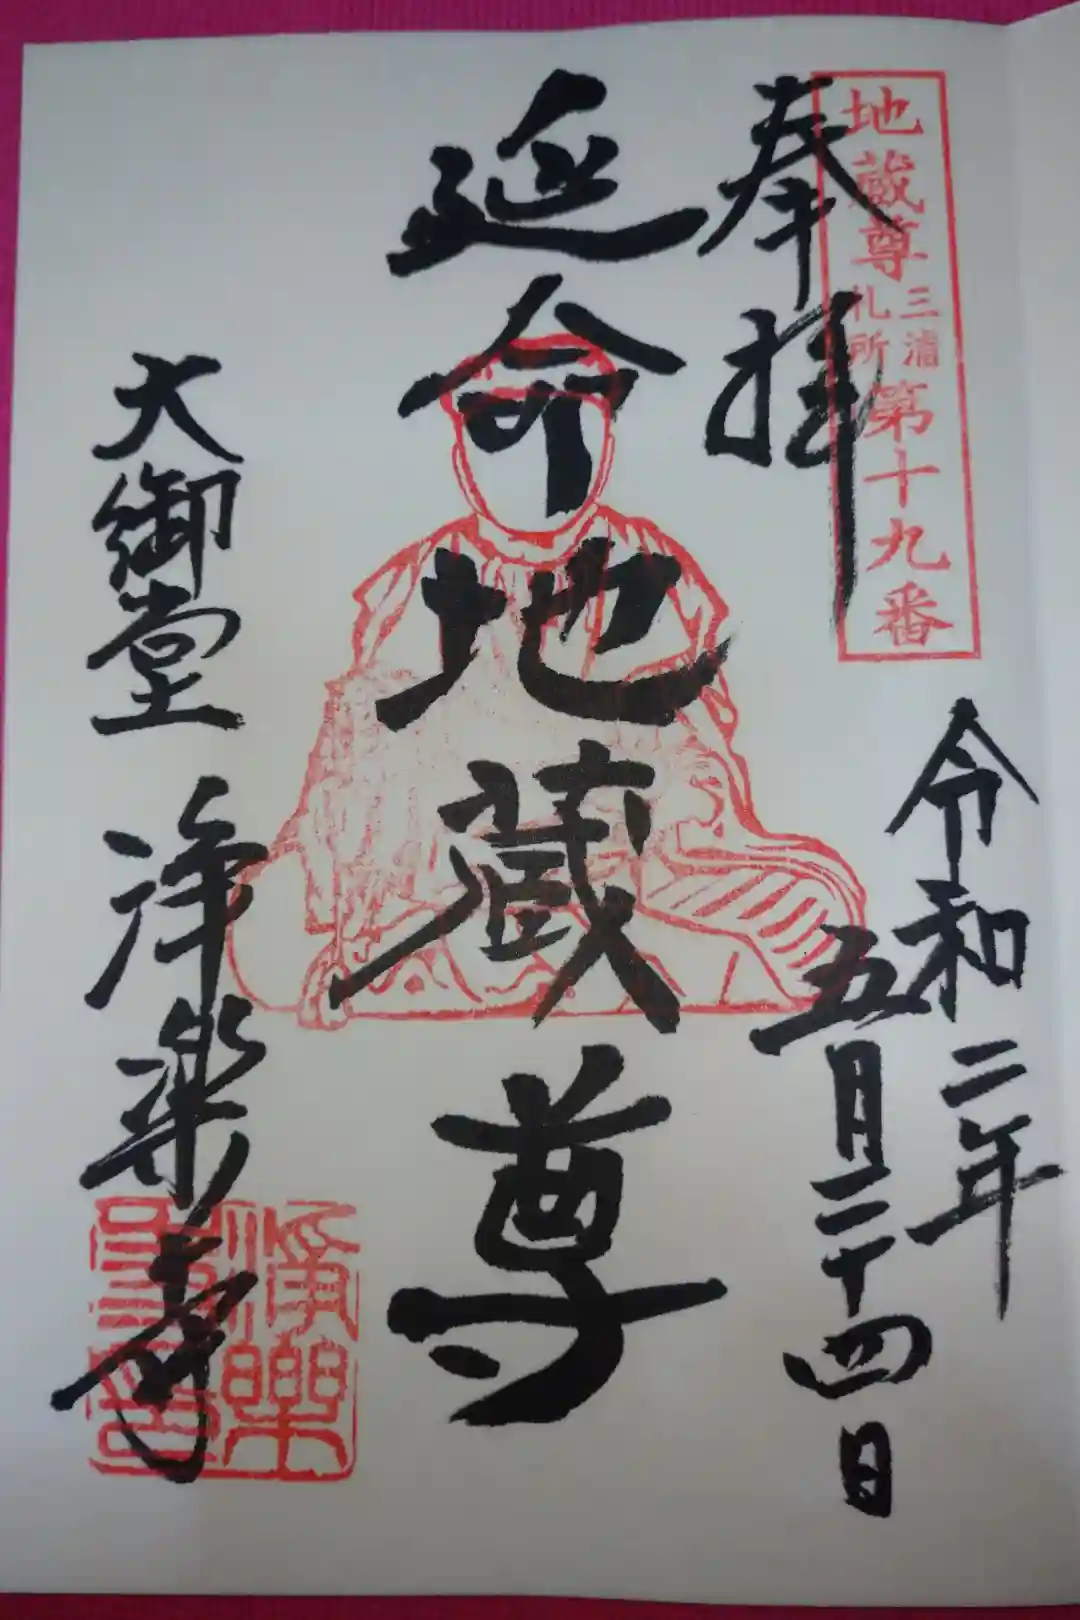 地蔵尊三浦札所第十九番
奉拝
令和二年
五月二十四日
延命地蔵尊
大御堂 浄楽寺